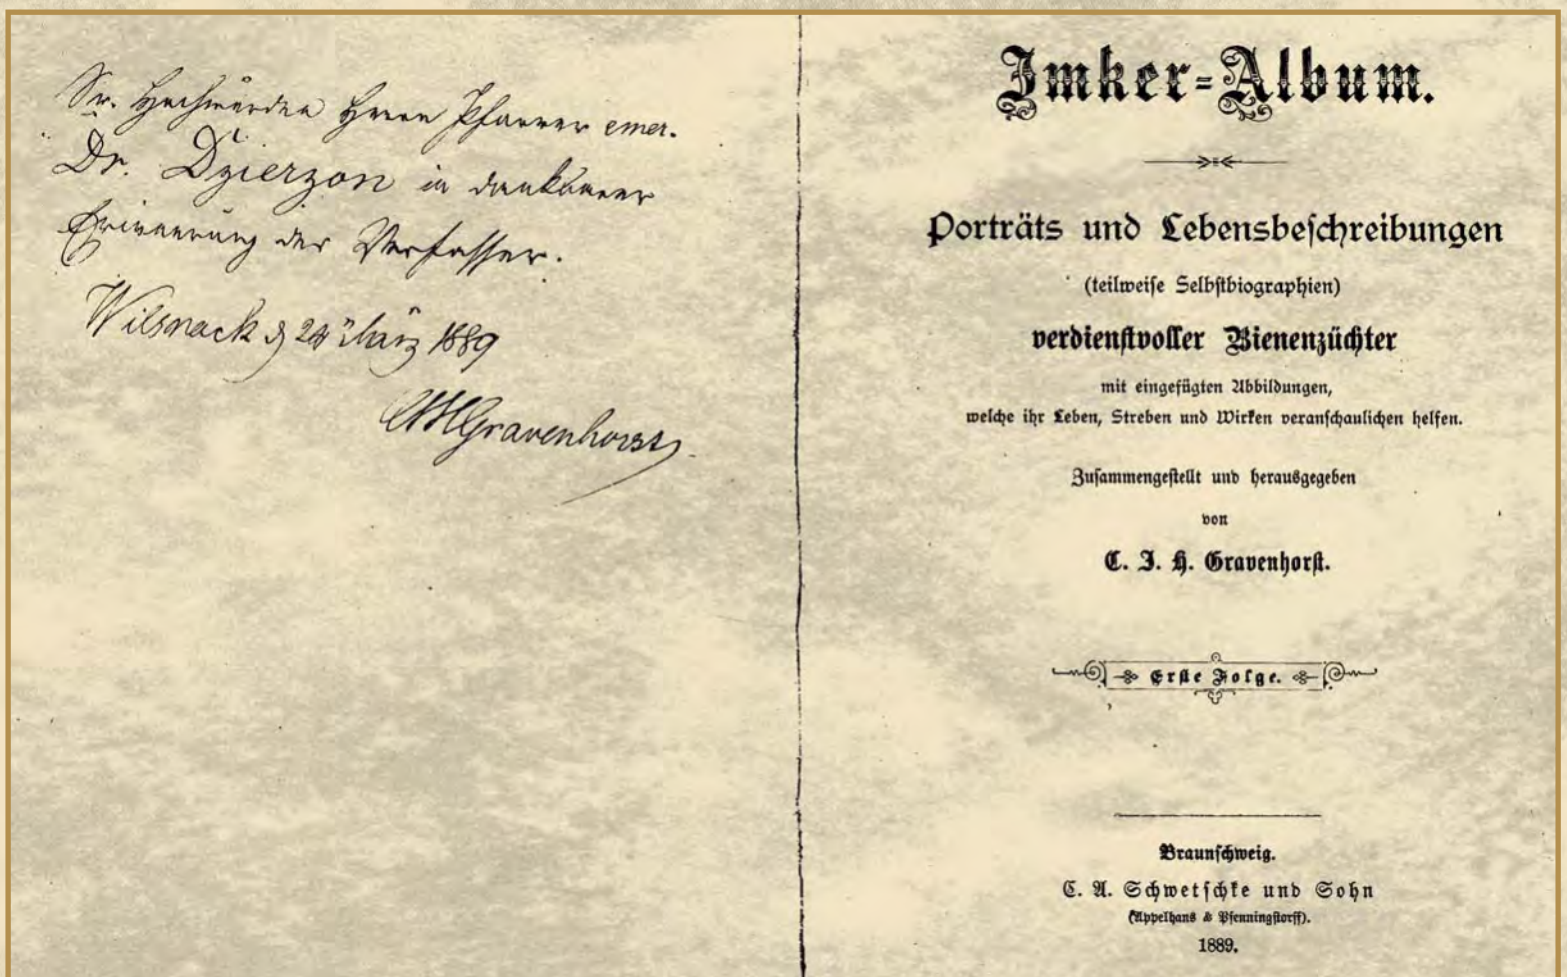 Sr. Hochwürden Herrn Pfarrer emer.
Dr. Dzierzon in dankbarer
Erinnerung der Verfasser.
Wilsnack d 24 März 1889
CJHGravenhorst
Imker-Album.
Porträts und Lebensbeſchreibungen
(teilweiſe Selbſtbiographien)
verdienſtvoller Bienenzüchter
mit eingefügten Abbildungen,
welche ihr Leben, Streben und Wirken veranſchaulichen helfen.
Zuſammengeſtellt und herausgegeben
von
C. J. H. Gravenhorſt.
Erſte Folge.
Braunſchweig.
C. A. Schwetſchke und Sohn
(Appelhans & Pfenningſtorff).
1889.